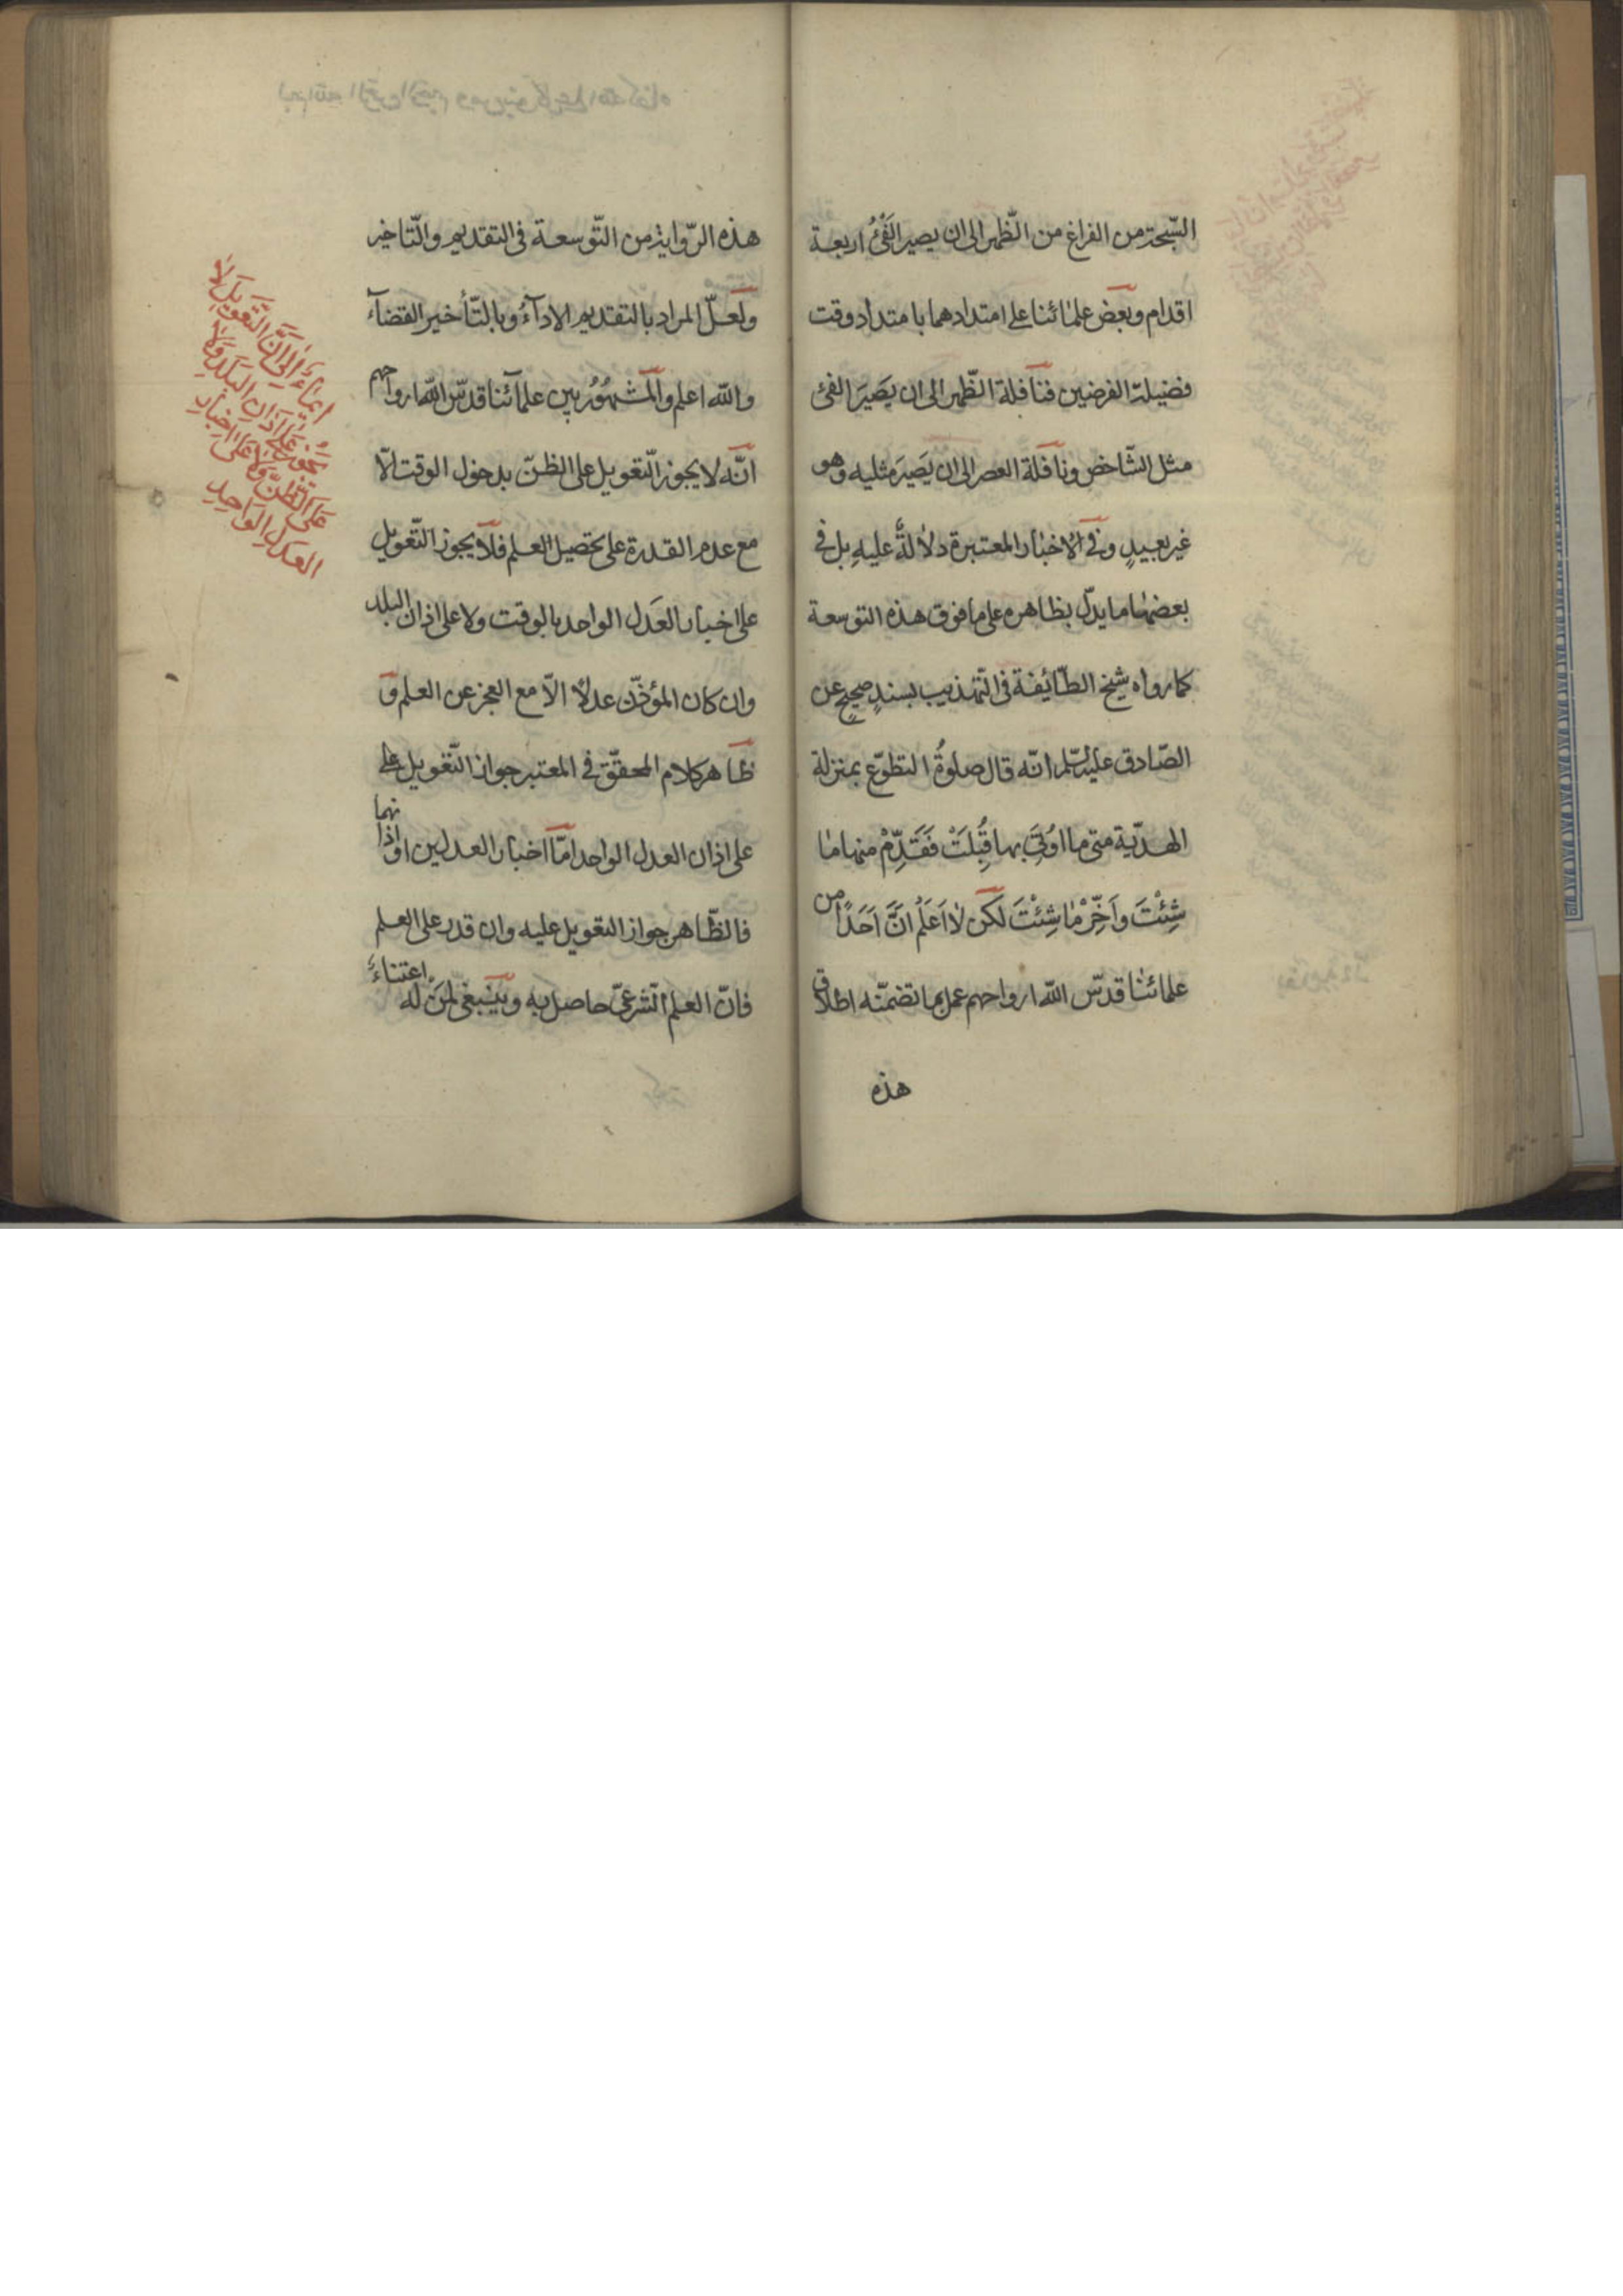 السّبحة من الفراغ من الظّهر الى ان يصير الفَیْئُ اربعة
اقدام وبعض علمائنا على امتدادهما بامتداد وقت
فضيلة الفرضين فنافلة الظّهر الى ان يَصيَر الفئ
مثل الشّاخص ونافلة العصر الى ان يَصيَر مثليه وهو
غير بعيدٍ وفى الاخبار المعتبرة دلالةٌ عليهِ بل فى
بعضها ما يدلّ بظاهره على ما فوق هذه التوسعة
كما رواه شيخ الطّائفة فى التّهذيب بسندٍ صحيحٍ عن
الصّادق عليه السّلم انّه قال صلوةُ التطوّع بمنزلة
الهديّة متى ما اُوتِىَ بها قُبِلَتْ فَقَدِّمْ منها ما
شِئْتَ واَخِّرْ مٰا شِئْتَ لكن لا اَعَلَمُ انَّ اَحَدًا من
علمائنا قدّس الله ارواحهم عمل بما تضمنّه اطلاق
هذه
هذه الرّواية من التّوسعة فى التقديم والتّاخير
ولعلّ المراد بالتقديم الادآءُ وبالتّأخير القضآء
والله اعلم والمشهُوُر بين علمآئنا قدّس الله ارواحهم
انّه لا يجوز التّعويل على الظنّ بدخول الوقت الّا
مع عدم القدرة على تحصيل العلم فلا يجوز التّعويل
على اخبار العَدل الواحد بالوقت ولا على اذان البلد
وان كان المؤذّن عدلًا الّا مع العجز عن العلم و
ظاهر كلام المحقّق فى المعتبر جواز التّعويل على
على اذان العدل الواحد امّا اخبار العدلين او اذانهما
فالظّاهر جواز التعويل عليه وان قدر على العلم
فانّ العلم الشّرعىّ حاصل به وينبغى لمن له اعتناءٌ
ايمَاءٌ اِلىٰ اَنَّ التَّعْوِيلَ لَا
عَلَى اَذَانِ البَلَدِ وَلَا
عَلَى الظَّنِّ وَلَا عَلَى اِخبارِ
العَدلِ الوَاحِدِ